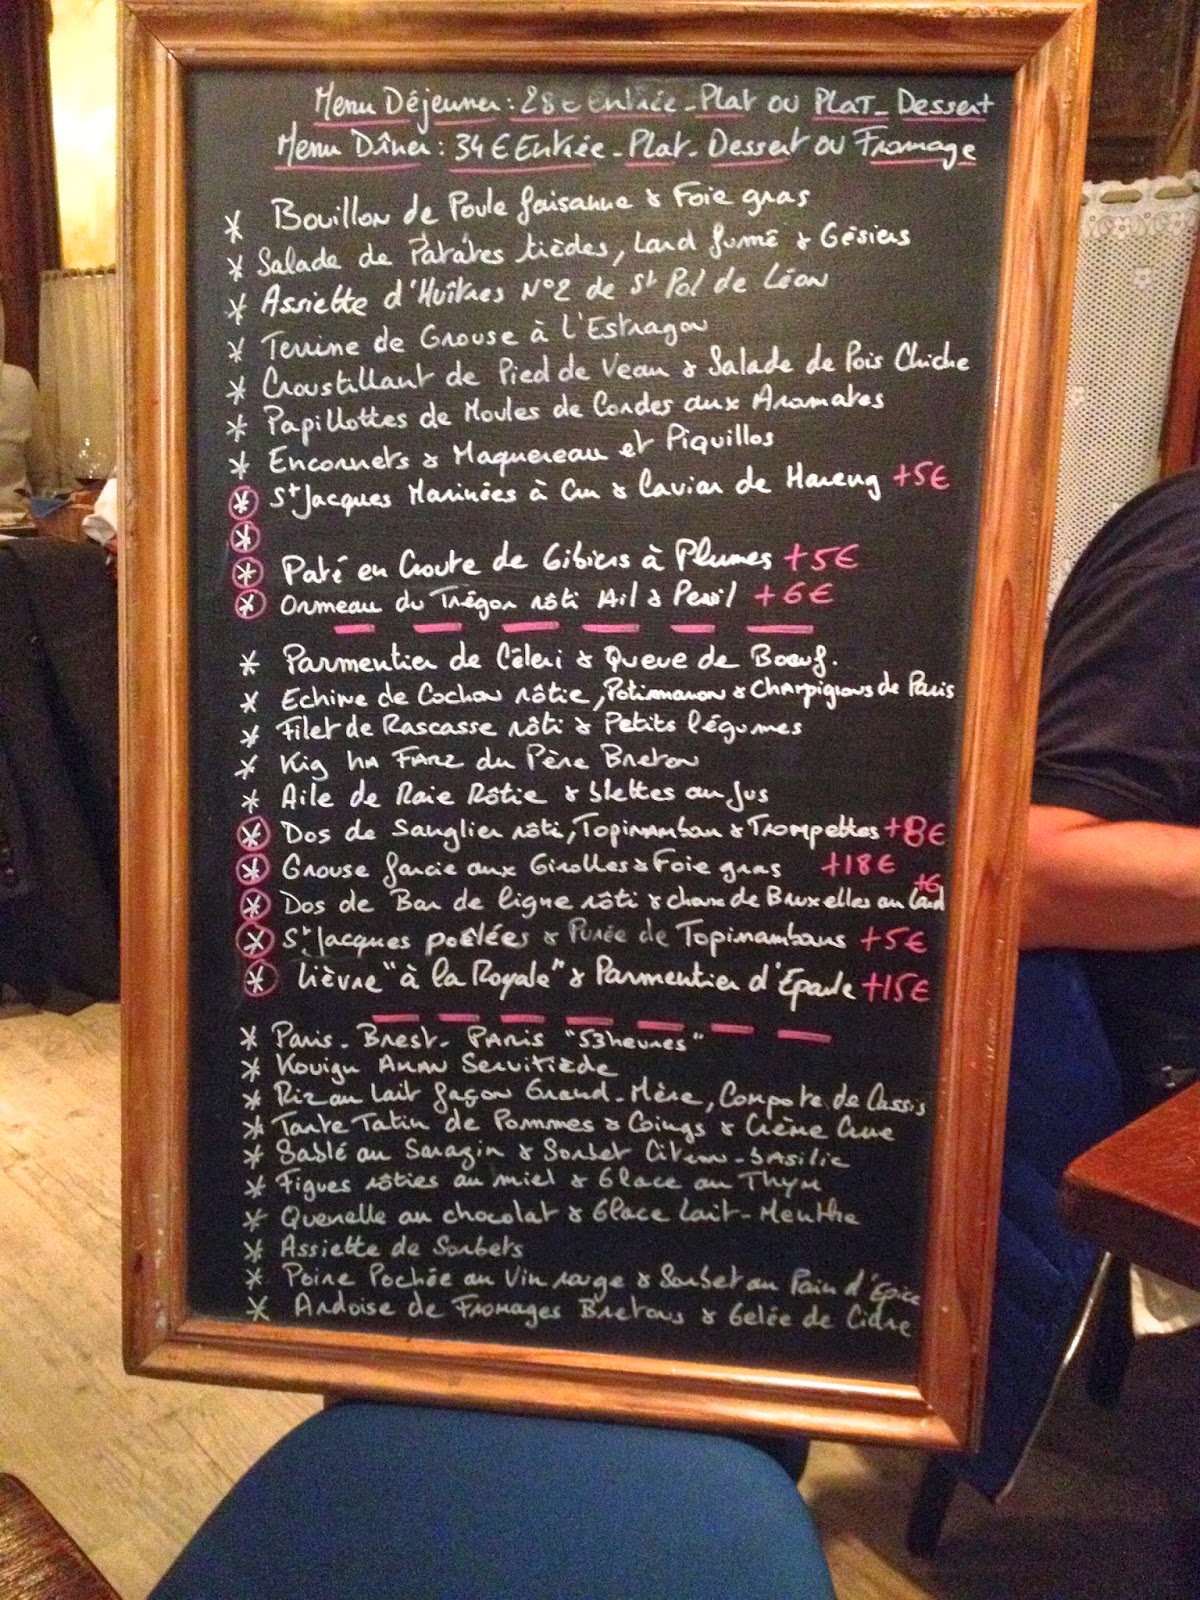 Menu Déjeuner : 28€ Entrée - Plat ou PLAT - Dessert
Menu Dîner : 34€ Entrée - Plat - Dessert ou Fromage
* Bouillon de Poule faisanne & Foie gras
* Salade de Patates tièdes, Lard fumé & Gésiers
* Assiette d'Huîtres N°2 de St Pol de Léon
* Terrine de Grouse à l'Estragon
* Croustillant de Pied de Veau & Salade de Pois Chiche
* Papillottes de Moules de Cordes aux Aromates
* Encornets & Maquereau et Piquillos
* St Jacques Marinées à Cru & Caviar de Hareng +5€
*
* Paté en Croute de Gibiers à Plumes +5€
* Ormeau du Trégor rôti Ail & Persil +6€
* Parmentier de Céleri & Queue de Bœuf.
* Echine de Cochon rôtie, Potimarron & Champignons de Paris
* Filet de Rascasse rôti & Petits légumes
* Kig ha FARZ du Père Breton
* Aile de Raie Rôtie & blettes au Jus
* Dos de Sanglier rôti, Topinambour & Trompettes +8€
* Grouse farcie aux Girolles & Foie gras +18€
* Dos de Bar de ligne rôti & choux de Bruxelles au Lard +6
* St Jacques poêlées & Purée de Topinambours +5€
* Lièvre "à la Royale" & Parmentier d'Epaule +15€
* Paris - Brest - PARIS "53 heures"
* Kouign AMAN Servi Tiède
* Riz au Lait façon Grand-Mère, Compote de Cassis
* Tarte Tatin de Pommes & Coings & Crème Crue
* Sablé au Sarazin & Sorbet Citron-bAsilic
* Figues rôties au miel & Glace au Thym
* Quenelle au chocolat & Glace Lait-Menthe
* Assiette de Sorbets
* Poire Pochée au Vin rouge & Sorbet au Pain d'Epice
* Ardoise de Fromages Bretons & Gelée de Cidre